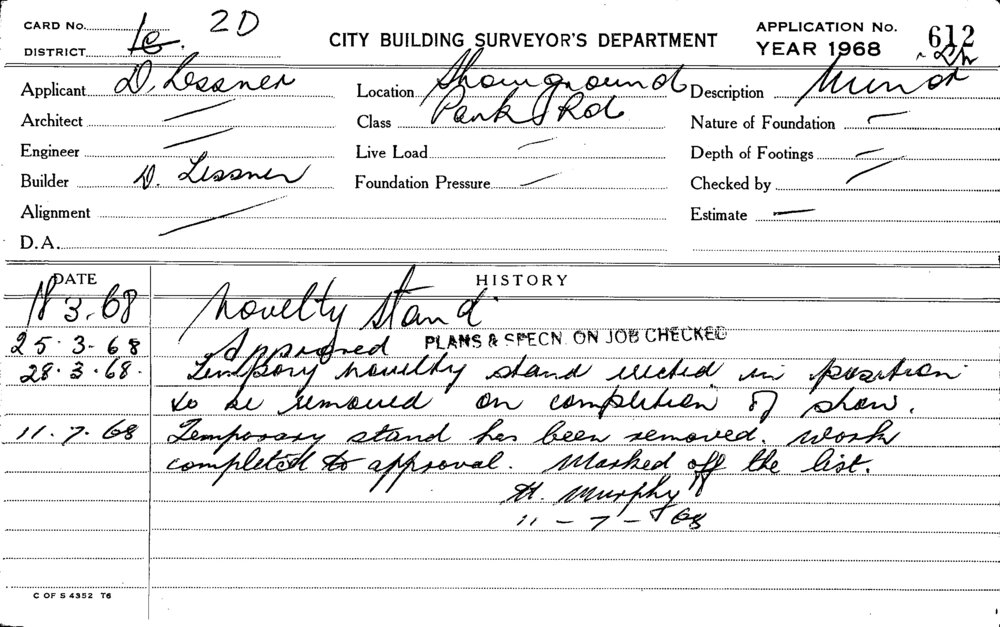 CARD No. 2D
DISTRICT
CITY BUILDING SURVEYOR'S DEPARTMENT
APPLICATION No. 612
YEAR 1968
Applicant D. Lessner
Location Showground
Description Minor
Architect —
Class Park Rd
Nature of Foundation —
Engineer —
Live Load —
Depth of Footings —
Builder D. Lessner
Foundation Pressure —
Checked by —
Alignment —
Estimate —
D.A.
DATE HISTORY
3.68 Novelty Stand
25.3.68 Approved PLANS & SPECN. ON JOB CHECKED
28.3.68. Tempory novelty stand erected in position
to be removed on completion of show.
11.7.68 Temporary stand has been removed. Work
completed to approval. Marked off the list.
H. Murphy
11-7-68
C OF S 4352 T6